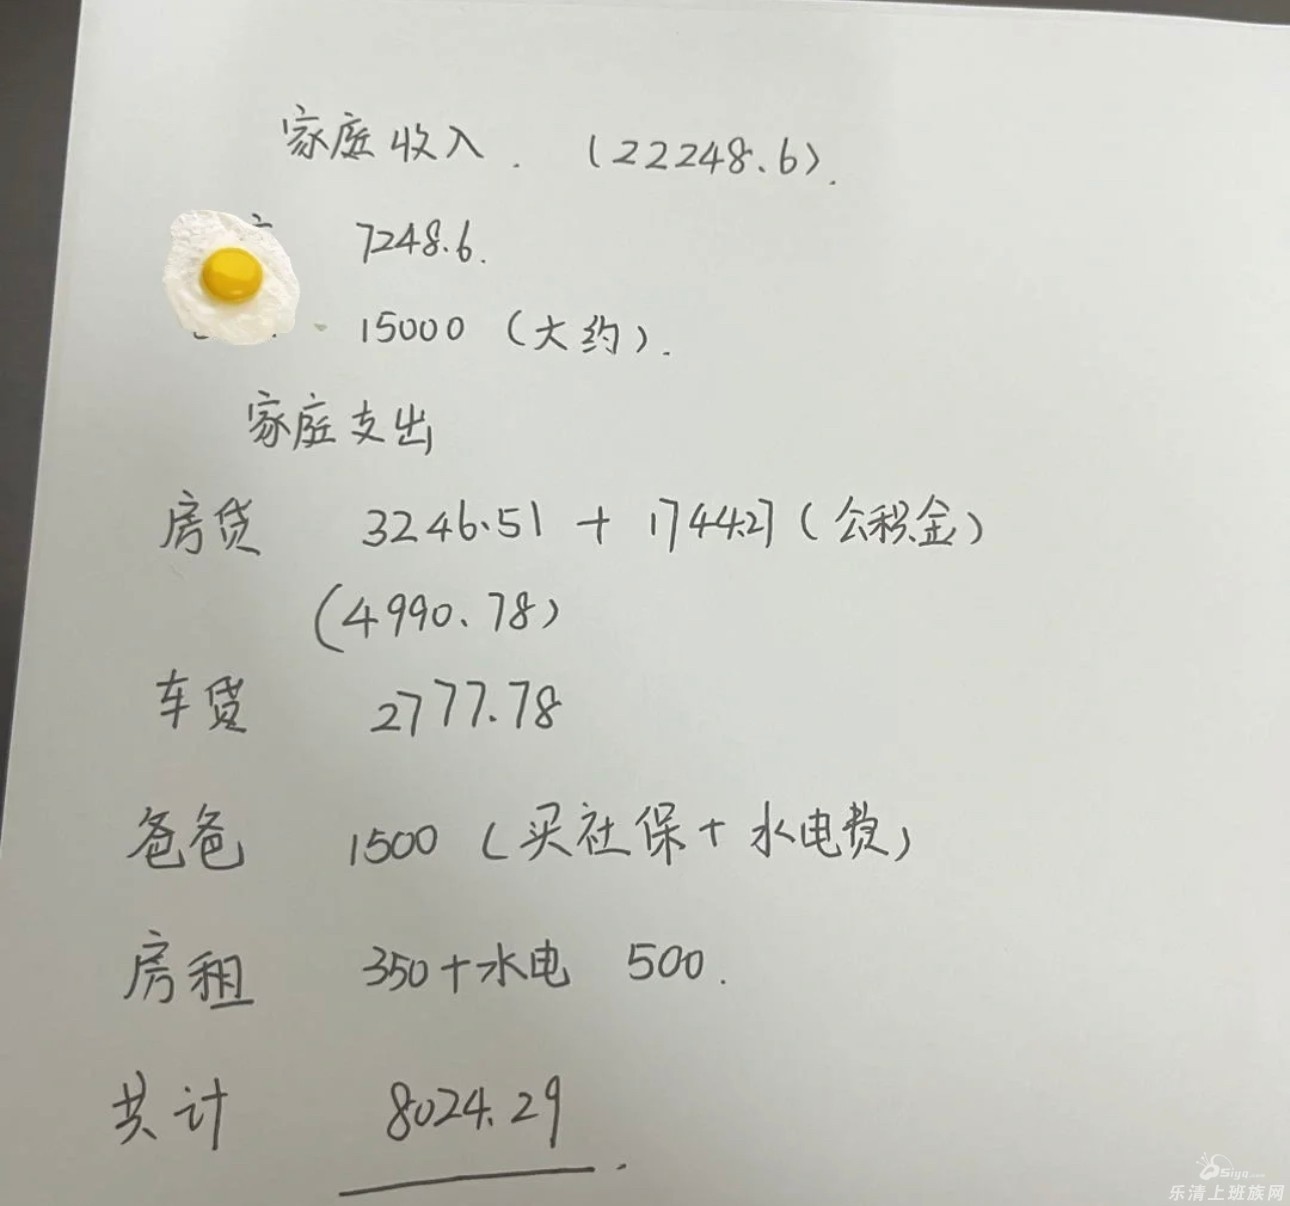 家庭收入. (22248.6).
7248.6.
15000 (大约).
家庭支出
房贷 3246.51 + 1744.27 (公积金)
(4990.78)
车贷 2777.78
爸爸 1500 (买社保+水电费)
房租 350+水电 500.
共计 8024.29.
乐清上班族网